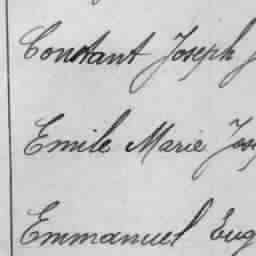 Constant Joseph
Emile Marie Jos
Emmanuel Eug